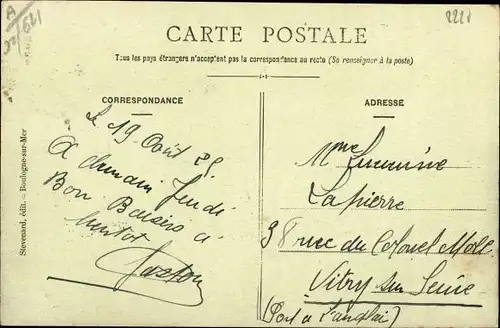 A
2221
CARTE POSTALE
Tous les pays étrangers n'acceptent pas la correspondance au recto (Se renseigner à la poste)
CORRESPONDANCE
ADRESSE
Stevenard, édit. — Boulogne-sur-Mer
Le 19 Août
A demain Jeudi
Bon Baisers à
bientot
Gaston
Mme
Lapierre
38 rue du Colonel Moll
Vitry sur Seine
(Port à l'anglai)